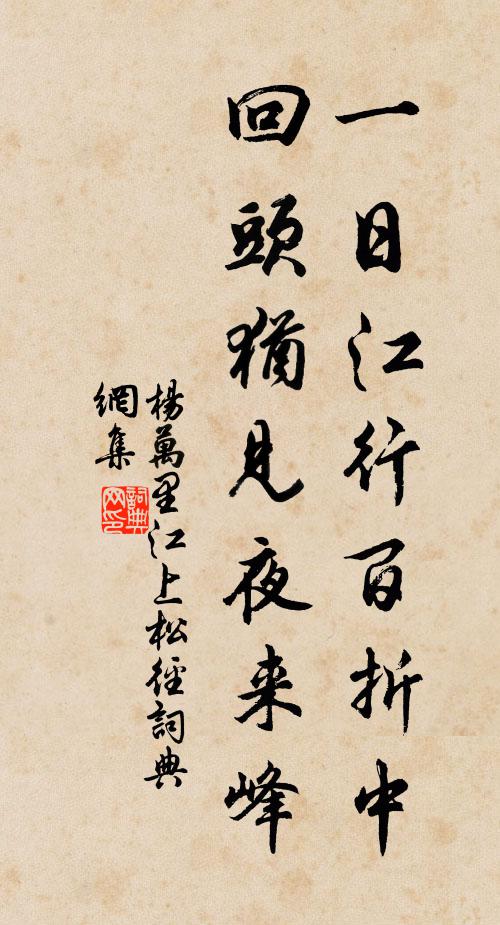 一日江行百折中
回頭猶見夜来峰
楊萬里江上松徑詞典
網集
詞典
网印